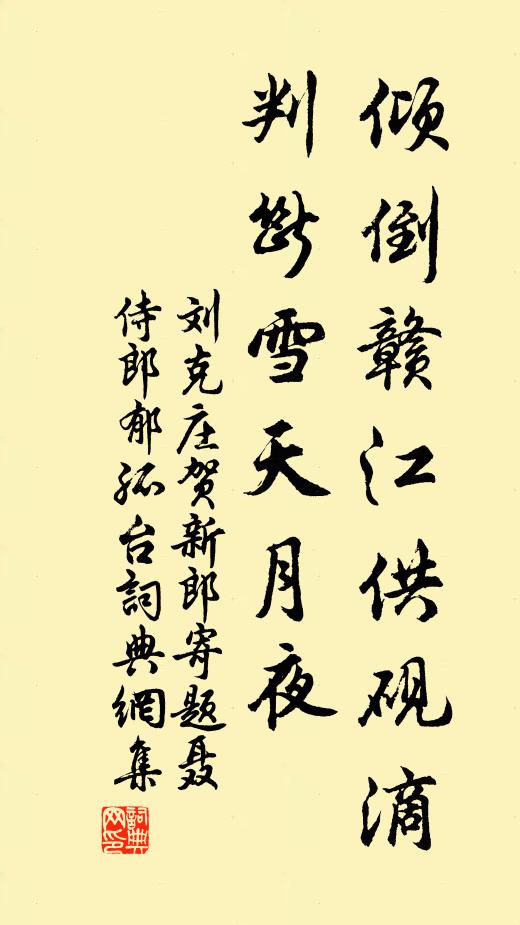 倾倒赣江供砚滴
判断雪天月夜
刘克庄贺新郎寄题聂
侍郎郁孤台詞典網集
詞典
网印